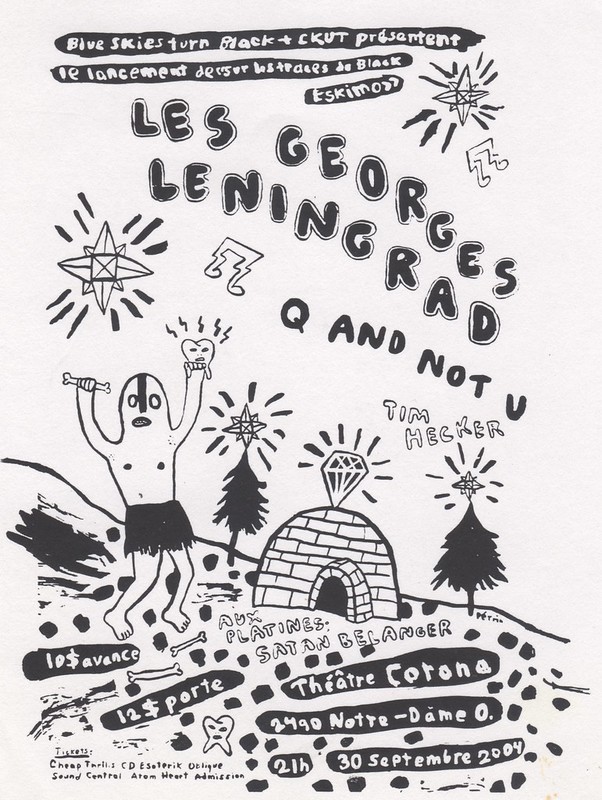 Blue Skies turn Black + CKUT présentent
le lancement de «sur les traces de Black
Eskimo»
LES GEORGES
LENINGRAD
Q AND NOT U
TIM
HECKER
Pétrin
AUX
PLATINES:
SATAN BELANGER
10$ avance
12$ porte
Théâtre Corona
2490 Notre-Dâme O.
21h 30 Septembre 2004
Tickets:
Cheap Thrills CD Esoterik Oblique
Sound Central Atom Heart Admission